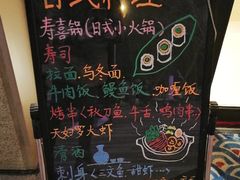 日式料理
寿喜锅(日式小火锅)
寿司
拉面.乌冬面.
牛肉饭.鳗鱼饭.咖喱饭
烤串(秋刀鱼.牛舌.鸡肉串)
天妇罗大虾
清酒
刺身(三文鱼.甜虾...)